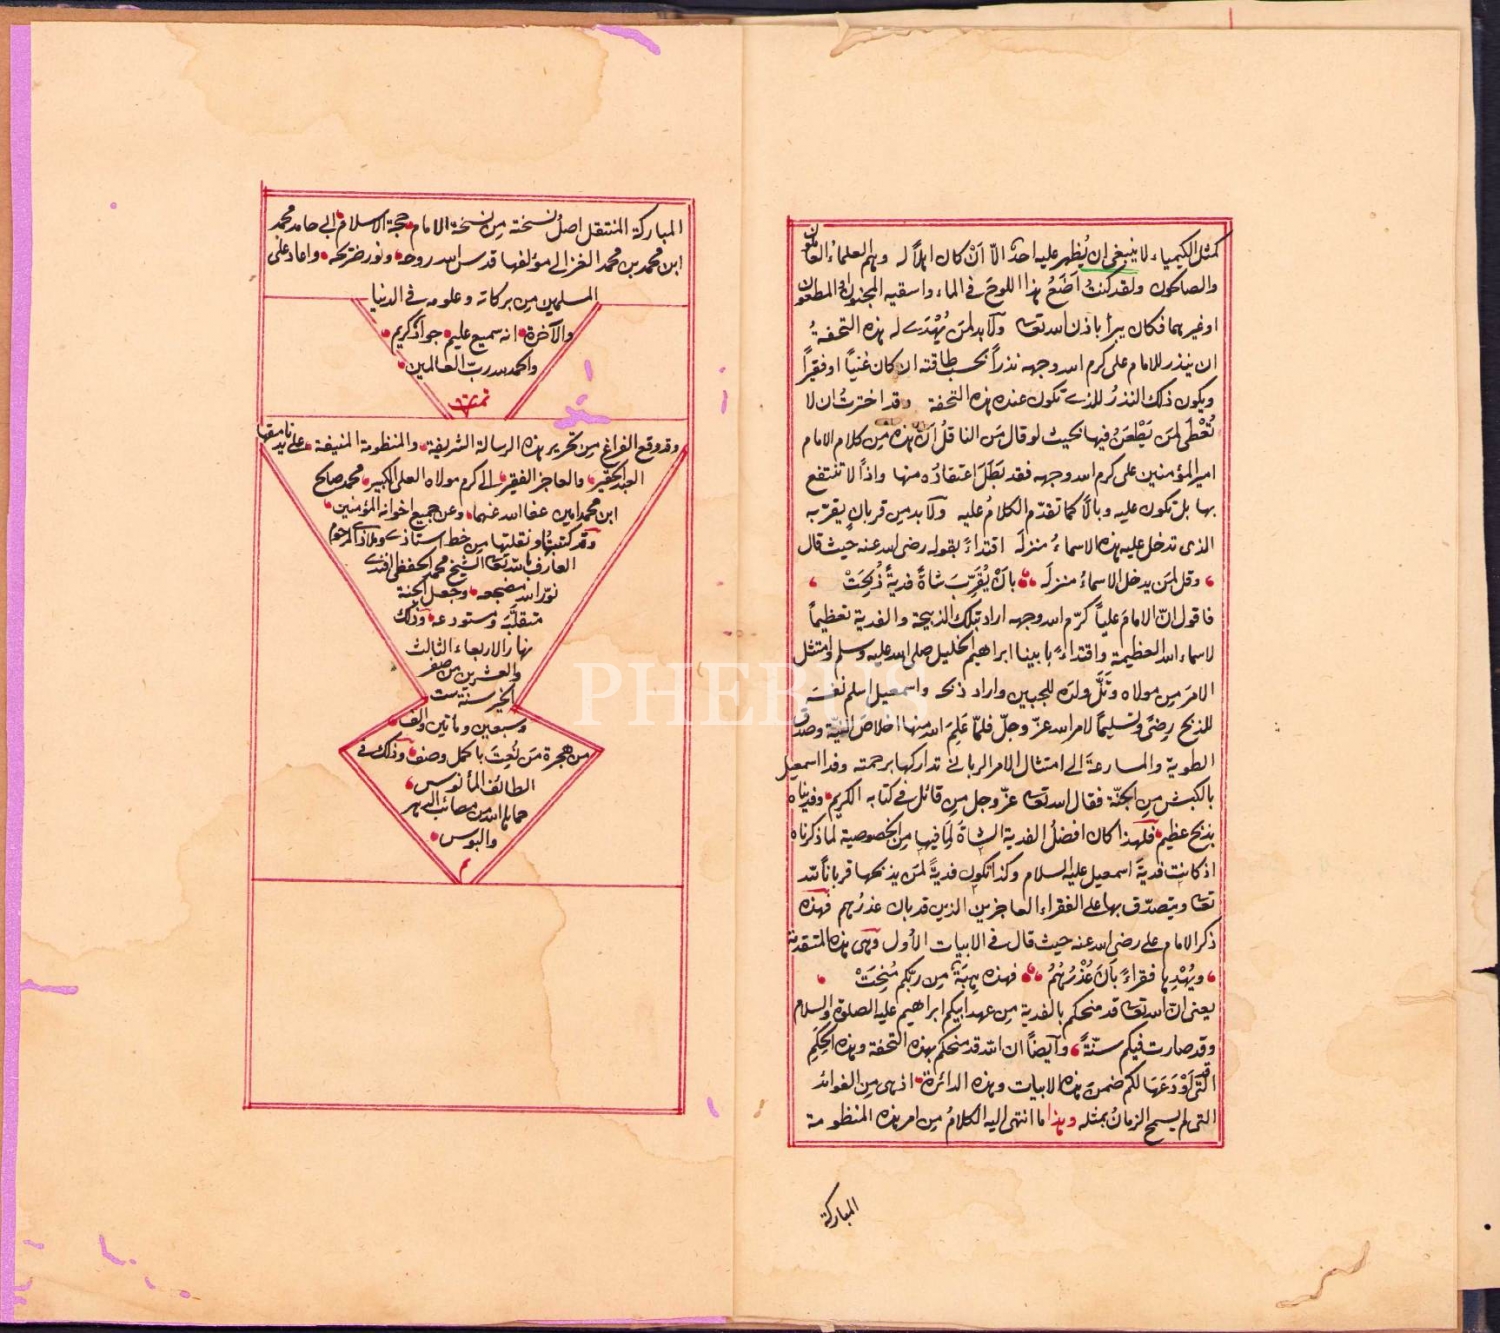 كمثل الكيمياء لا ينبغي ان يُظهر عليه احدٌ الّا اَنْ كان اهلاً له وهم العلماءُ العاملون
والصالحون ولقد كنتُ اَضَعُ هذا اللوحَ في الماء واسقيه المجنونَ والمطعون
اوغيرهما فكان يبرأ باذن الله تعا ولابد لمَن يُهْدَى له هذه التحفةُ
ان ينذر للامام على كرم الله وجهه نذراً بحسب طاقته ان كان غنياً اوفقيراً
ويكون ذلك النذرُ للذى تكون عنده هذه التحفة وقد اخترتُ ان لا
تُعْطَى لمَن يَطْعَنُ فيها بحيث لو قال مَن الناقلُ اَنّ هذه من كلام الامام
امير المؤمنين على كرم الله وجهه فقد بَطَلَ اعتقادُه منها واذاً لا تنتفع
بها بل تكون عليه وبالاً كما تقدّم الكلامُ عليه ولابد من قربانٍ يقرّبه
الذى تدخل عليه هذه الاسماءُ منزله اقتداءً بقوله رضى الله عنه حيث قال
وقل لمَن يدخل الاسماءُ منزلَه باَنْ يُقَرّبَ شاةً فديةً ذُبِحَتْ
فاقول انّ الامامَ علياً كرّم الله وجهه اراد بتلك الذبيحة والفدية تعظيماً
لاسماء الله العظيمة واقتداءً بابينا ابراهيم الخليل صلى الله عليه وسلم وامتثل
الامرَ من مولاه وتَلَّ ولدَه للجبين واراد ذبحه واسمعيل اسلم نفسَه
للذبح رضىً وتسليماً لامر الله عزّ وجلّ فلمّا عَلِمَ الله منها اخلاصَ النيّة وصدقَ
الطوية والمسارعةَ الى امتثال الامر الرباني تداركها برحمته وفدا اسمعيل
بالكبش من الجنّة فقال الله تعا عزّ وجل من قائل في كتابه الكريم وفديناه
بذبح عظيم فلهذا كان افضلُ الفدية الشاةَ لِمَا فيها من الخصوصية لما ذكرناه
اذ كانت فديةَ اسمعيل عليه السلام وكذا تكون فديةً لمَن يذبحها قرباناً لله
تعا ويتصدّق بها على الفقراء العاجزين الذين قد بان عذرُهم فهذه
ذكر الامام على رضى الله عنه حيث قال في الابيات الأول وهى هذه المتقدمة
ويُهْدِيها فقراءً بَانَ عُذْرُهُمُ فهذه هِبَةٌ من ربّكم مُنِحَتْ
يعنى انّ الله تعا قد منحكم بالفدية من عهد ابيكم ابراهيم عليه الصلوة والسلام
وقد صارت فيكم سنّةً وايضاً ان الله قد منحكم بهذه التحفة وهذه الحِكَمِ
التى اَوْدَعَهَا لكم ضمنَ هذه الابيات وهذه الدائرة اذ هى من الفوائد
التى لم يسمح الزمانُ بمثله وهذا ما انتهى اليه الكلامُ من امر هذه المنظومة
المباركة
المباركة المنتقل اصلُ نسخته من نسخة الامام حجة الاسلام ابى حامد محمد
ابن محمد بن محمد الغزالى مؤلفها قدس الله روحه ونور ضريحه واعاد على
المسلمين من بركاته وعلومه في الدنيا
والآخرة انه سميع عليم جوادٌ كريم
والحمد لله ربّ العالمين
تمت
وقد وقع الفراغ من تحرير هذه الرسالة الشريفة والمنظومة المنيفة على يد نامقها
العبد الحقير والعاجز الفقير الى كرم مولاه العلى الكبير محمد صالح
ابن محمد امين عفا الله عنهما وعن جميع اخوانه المؤمنين
وقد كتبتُها ونقلتها من خط استاذى وملاذى المرحوم
العارف بالله تعا الشيخ محمد الحفظى افندى
نوّر الله مضجعه وجعل الجنة
متقلّبَه ومستودعه وذلك
نهار الاربعاء الثالث
والعشرين من صفر
الخير سنة ست
وسبعين ومأتين والف
من هجرة مَن نُعِتَ باكمل وصف وذلك في
الطائف المأنوس
حماها الله من مصائب الدهر
والبوس
م
PHEBUS